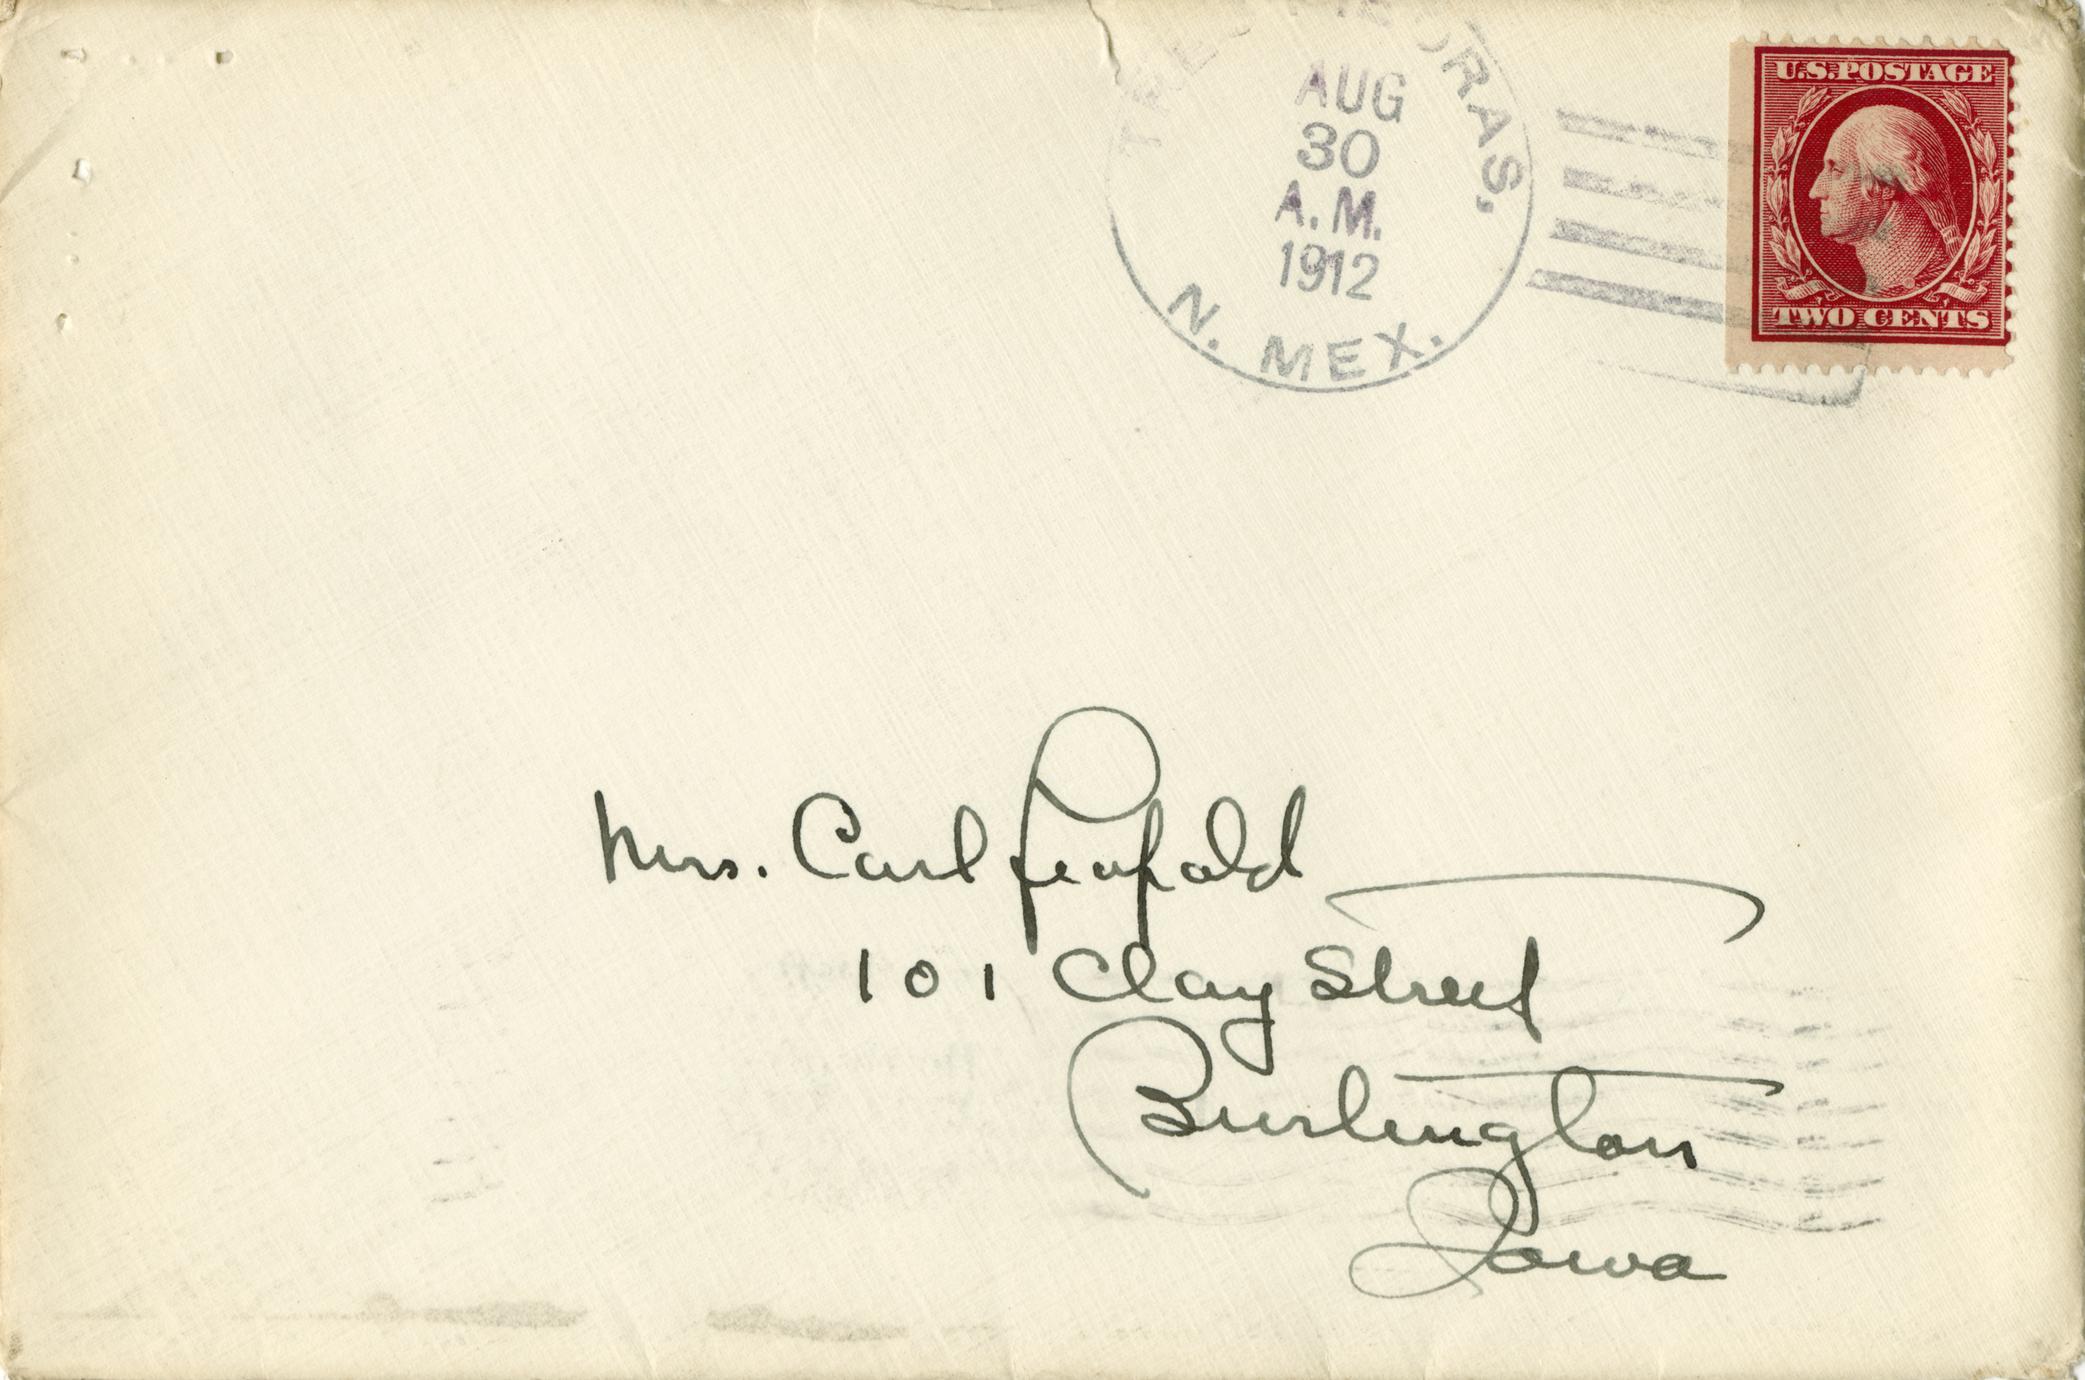 TRES PIEDRAS,
AUG
30
A.M.
1912
N. MEX.
U.S. POSTAGE
TWO CENTS
Mrs. Carl Leopold
101 Clay Street
Burlington
Iowa